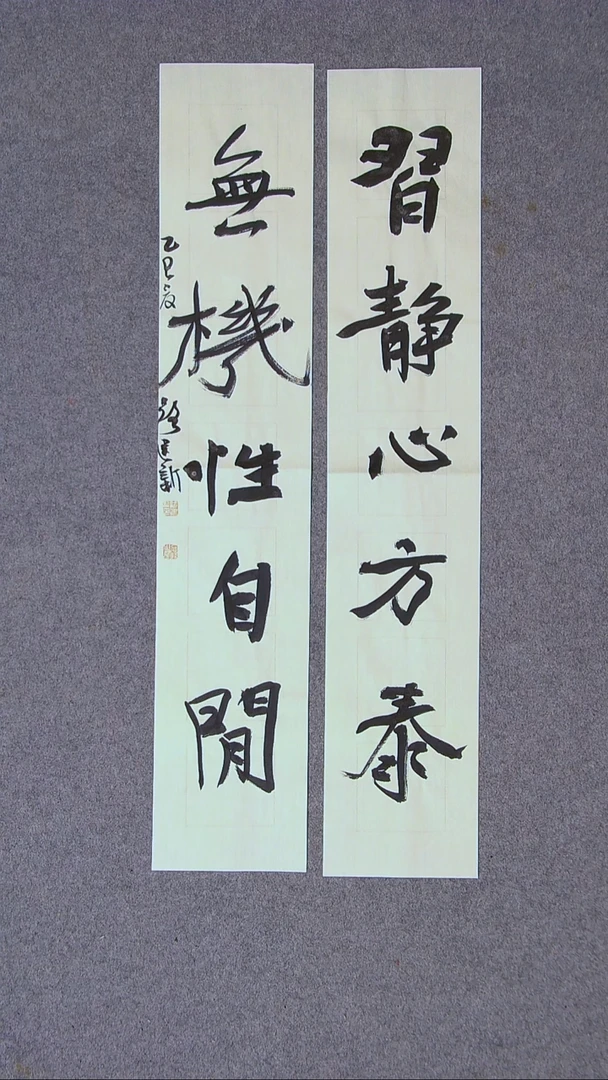 習靜心方泰
無機性自閒
乙巳夏
建新